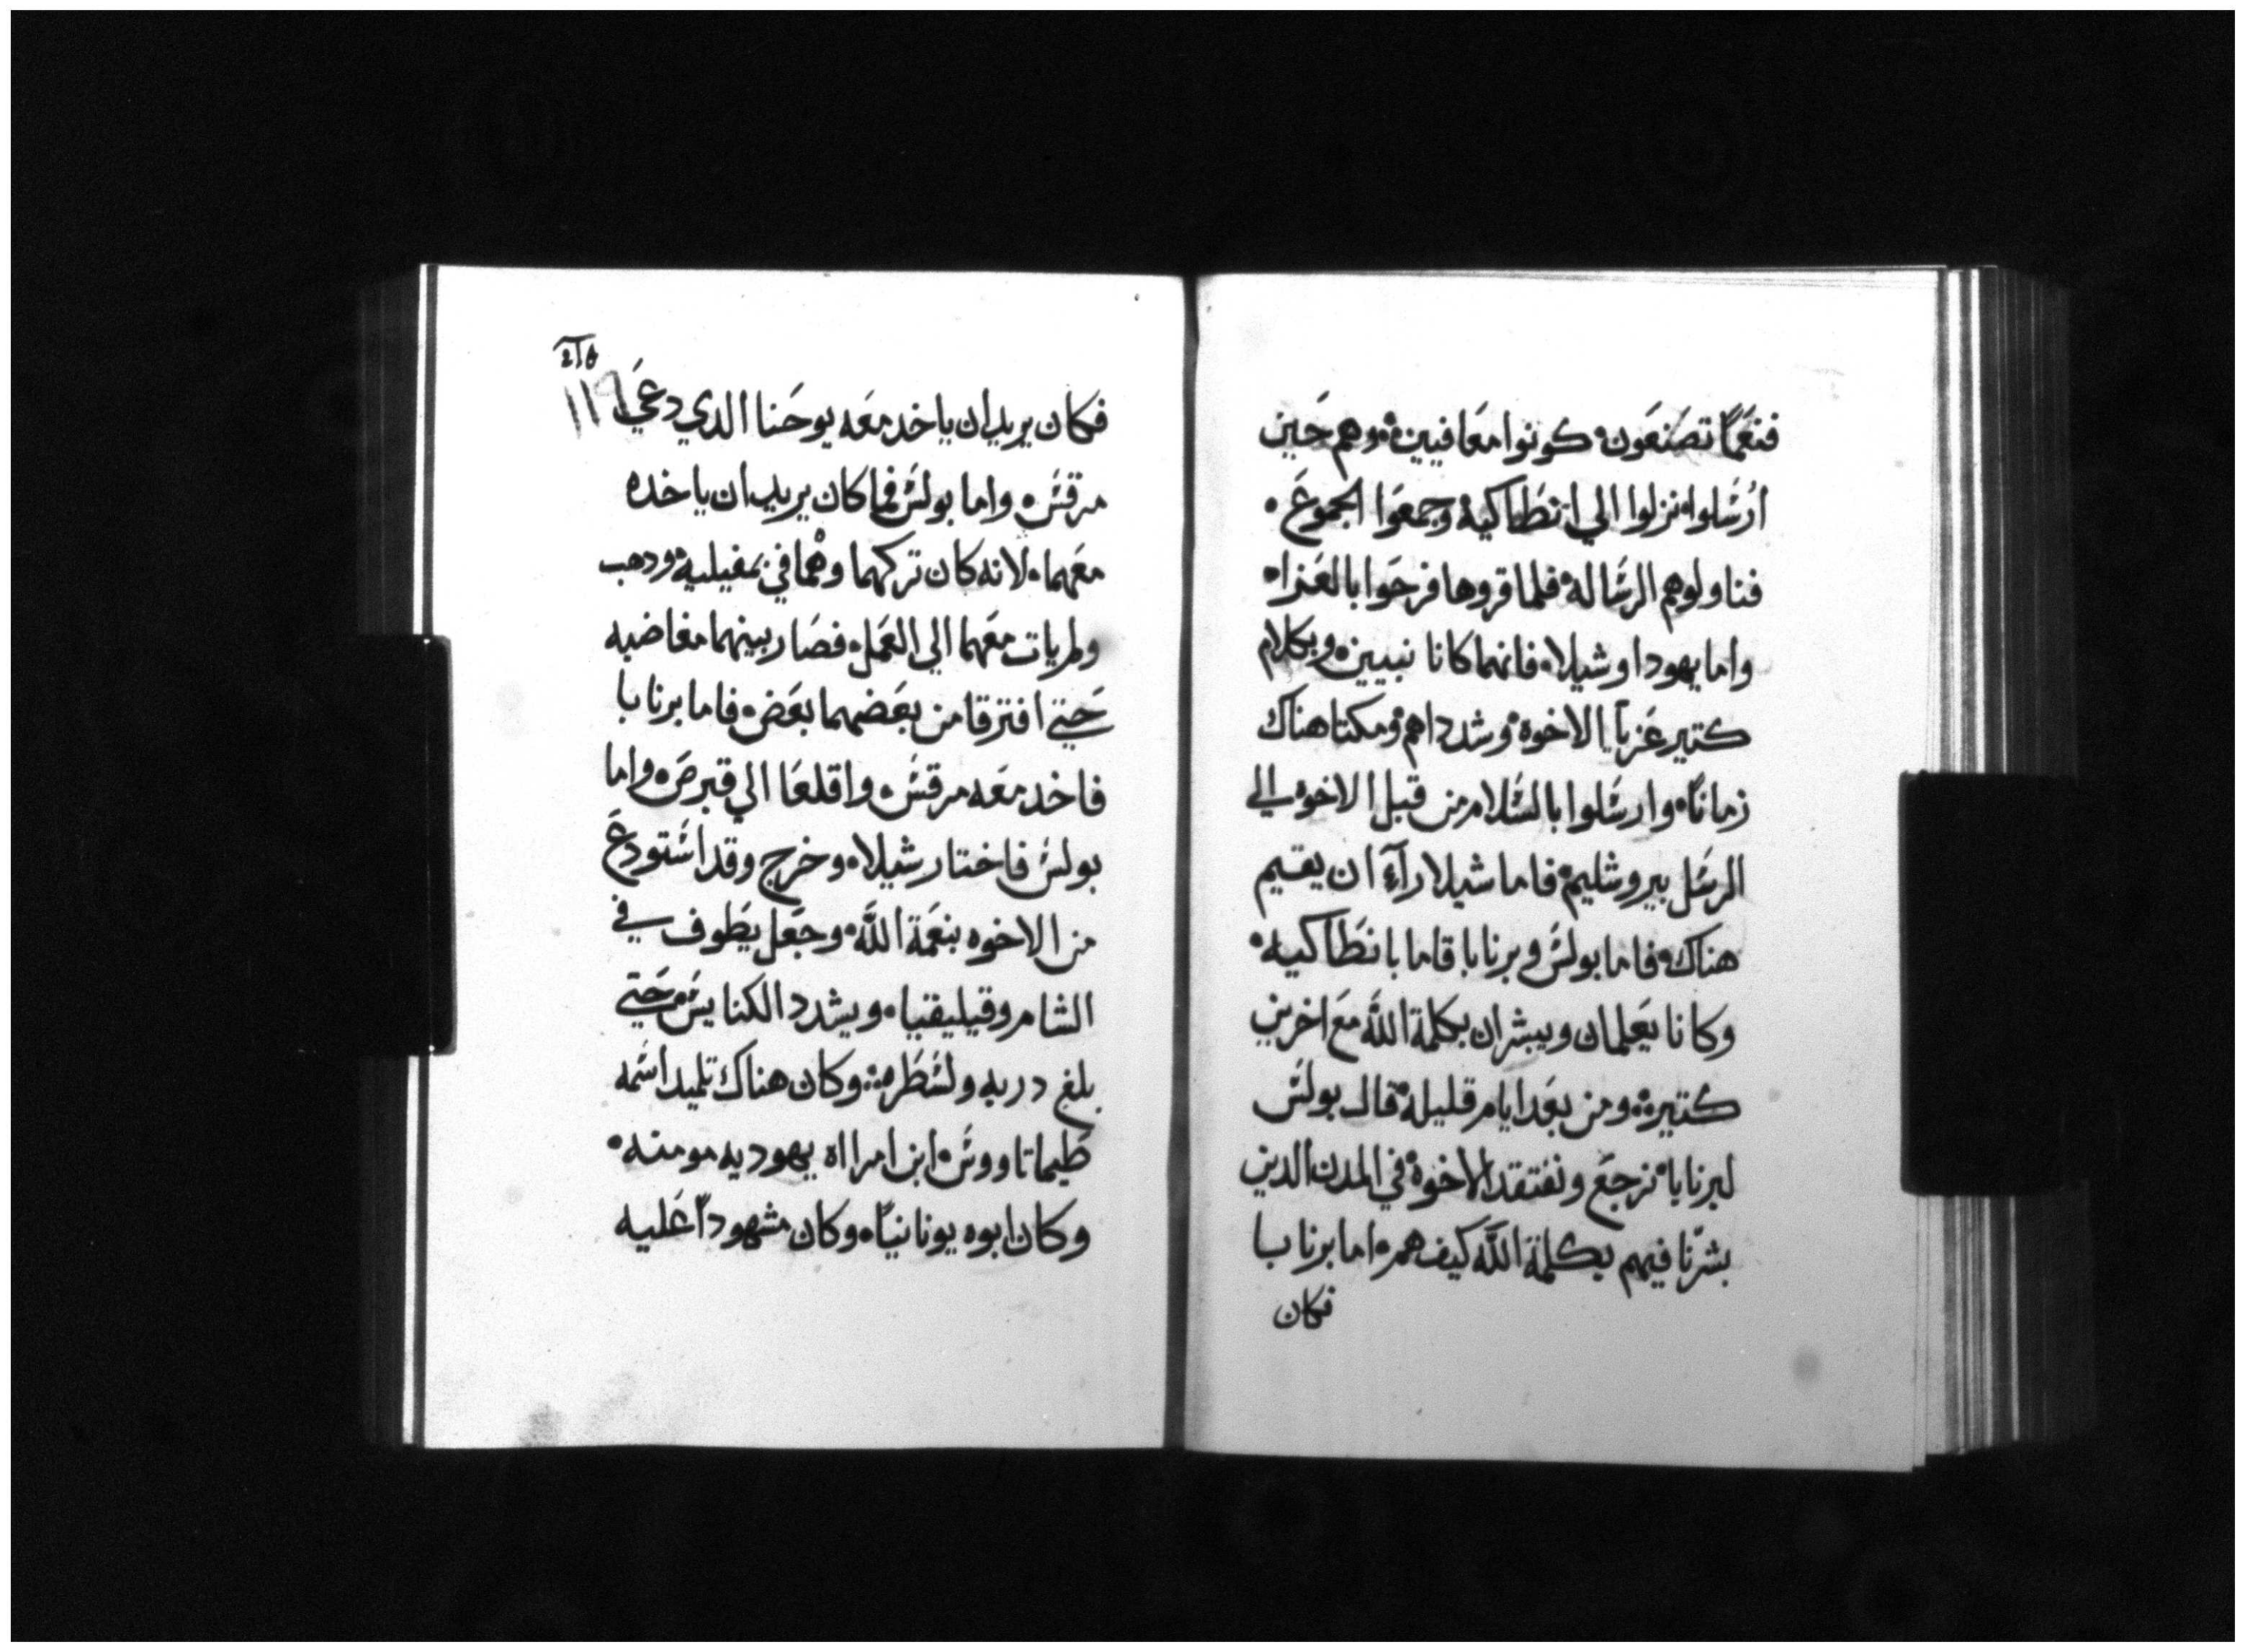 فنعمًا تصنعون، كونوا معافيين، وهم حين
ارسلوا، نزلوا الي انطاكيه، وجمعوا الجموع،
فناولوهم الرساله، فلما قروها فرحوا بالعزاء
واما يهودا وشيلا، فانهما كانا نبيين، وبكلام
كتير عزيا الاخوة، وشدداهم، ومكتا هناك
زمانًا، وارسلوا بالسلام من قبل الاخوه الي
الرسل بيروشليم، فاما شيلا رآء ان يقيم
هناك، فاما بولس وبرنابا قاما بانطاكيه،
وكانا يعلمان ويبشران بكلمة الله مع اخرين
كتيرة، ومن بعد ايام قليلة، قال بولس
لبرنابا، نرجع ونفتقد الاخوة، في المدن الدين
بشرنا فيهم بكلمة الله كيف هم، اما برنابا
فكان
١١٩
فكان يريد ان ياخد معه يوحنا الدي دعي
مرقس، واما بولس فما كان يريد ان ياخده
معهما، لانه كان تركهما وهما في بمفيليه، ودهب
ولم يات معهما الي العمل، فصار بينهما مغاضبه
حتي افترقا من بعضهما بعض، فاما برنابا
فاخد معه مرقس، واقلعا الي قبرص، واما
بولس فاختار شيلا، وخرج وقد استودع
من الاخوه بنعمة الله، وجعل يطوف في
الشام وقيليقيا، ويشدد الكنايس، حتي
بلغ دربه ولسطره، وكان هناك تلميد اسمه
طيماتاووس، ابن امراه يهوديه مومنه،
وكان ابوه يونانيًا، وكان مشهودًا عليه